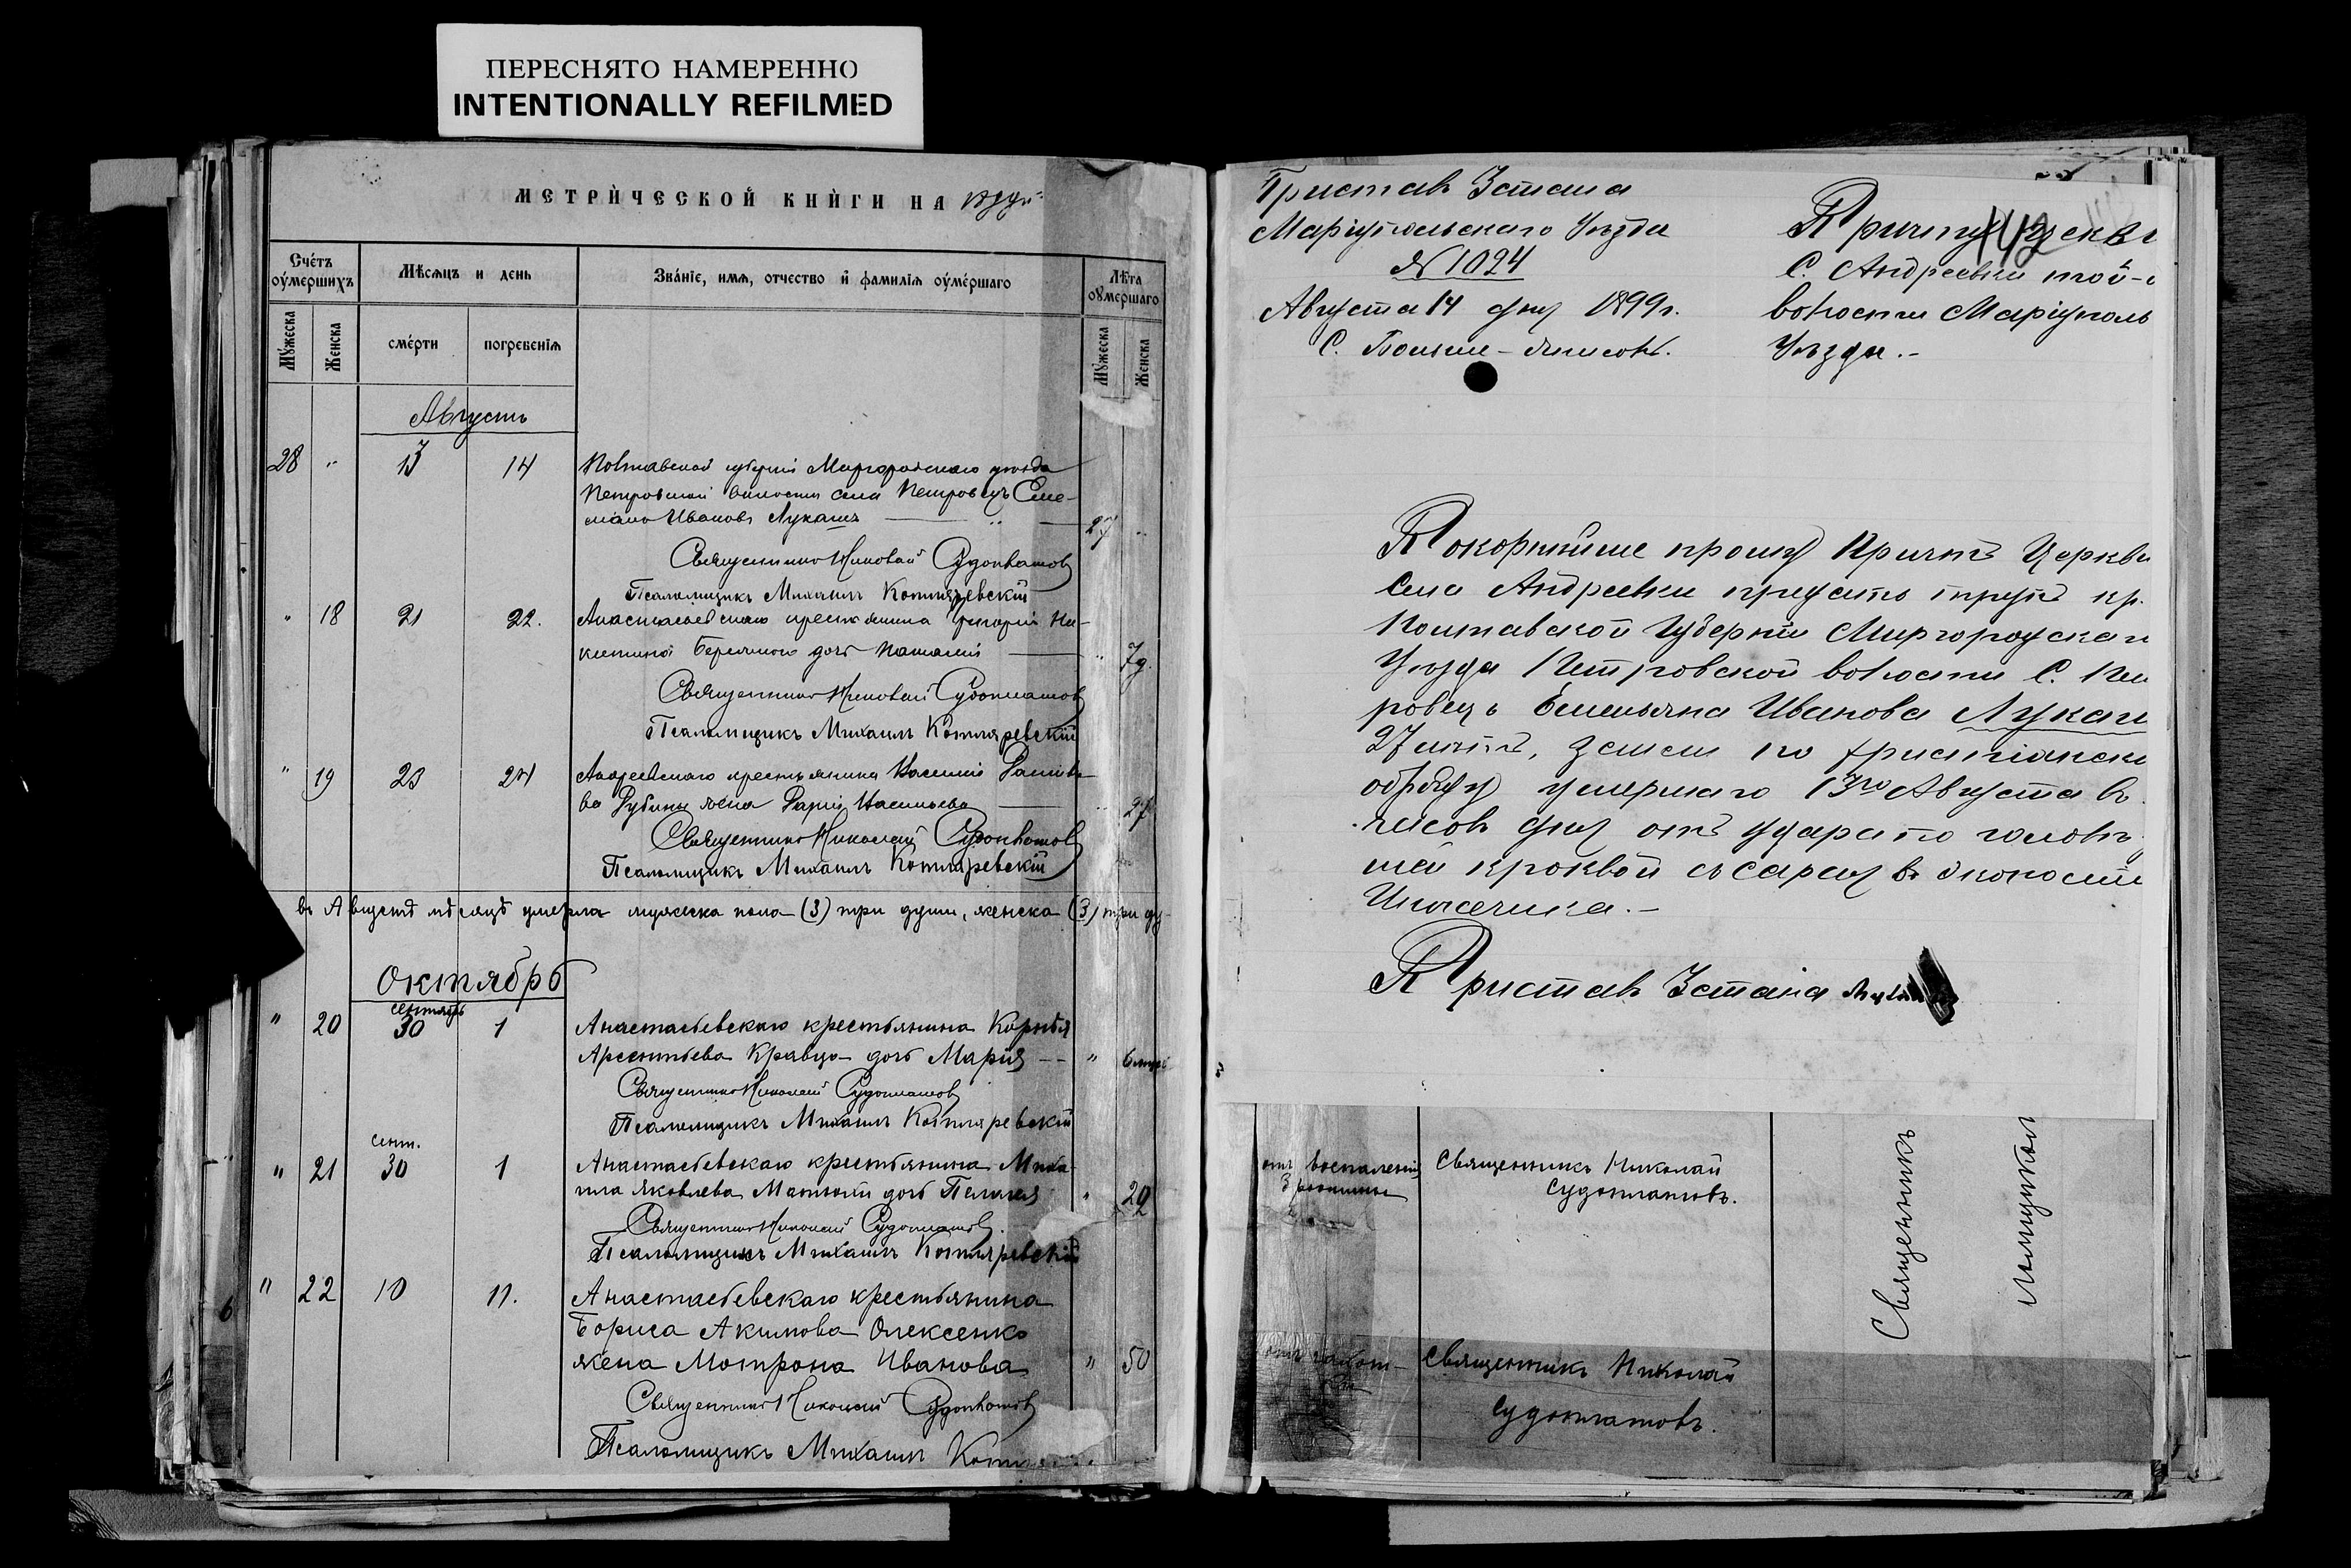 ПЕРЕСНЯТО НАМЕРЕННО
INTENTIONALLY REFILMED
МЕТРИЧЕСКОЙ КНИГИ НА
Счетъ оумершихъ
Мѣсяцъ и день
Званіе, имя, отчество и фамилія оумершаго
Лѣта оумершаго
Мужеска
Женска
смерти
погребенія
Мужеска
Женска
Августъ
28 " 13 14
Полтавской губерніи Миргородскаго уѣзда
Петровской волости села Петровецъ Еме-
льянъ Ивановъ Лукашъ 27 "
Священникъ Николай Судоплатовъ
Псаломщикъ Михаилъ Котляревскій
" 18 21 22.
Анастасьевскаго крестьянина Григорія Ни-
китина дочь Наталія " 7
Священникъ Николай Судоплатовъ
Псаломщикъ Михаилъ Котляревскій
" 19 23 24
Андреевскаго крестьянина Василія
жена Дарія Васильева " 27
Священникъ Николай Судоплатовъ
Псаломщикъ Михаилъ Котляревскій
въ Августѣ мѣсяцѣ умерло мужеска пола (3) три души, женска (3) три ду-
Октябрь
" 20 сентябрь 30 1
Анастасьевскаго крестьянина Корнѣя
Арсентьева Кравца дочь Марія "
Священникъ Николай Судоплатовъ
Псаломщикъ Михаилъ Котляревскій
" 21 сент. 30 1
Анастасьевскаго крестьянина Миха-
ила Яковлева дочь Пелагея " 20
Священникъ Николай Судоплатовъ.
Псаломщикъ Михаилъ Котляревскій
" 22 10 11.
Анастасьевскаго крестьянина
Бориса Акимова Олексенко
жена Мотрона Иванова " 50
Священникъ Николай Судоплатовъ
Псаломщикъ Михаилъ
Приставъ 3 стана
Маріупольскаго Уѣзда
№ 1024
Августа 14 дня 1899 г.
С. Больше-Янисоль.
Причту
142
С. Андреевки той-
волости Маріуполь
Уѣзда.-
Покорнѣйше прошу Причтъ Церкви
села Андреевки предать трупъ кр.
Полтавской Губерніи Миргородскаг
Уѣзда Петровской волости С. Пет
ровецъ Емельяна Иванова Лукаш
27 лѣтъ, землѣ по христіанск
обряду умершаго 13го Августа въ
часовъ дня отъ удара по головѣ
кроквой съ сарая въ экономіи
Приставъ 3 стана
отъ воспаленія
Священникъ Николай
Судоплатовъ.
Священникъ Николай
Судоплатовъ.
Священникъ